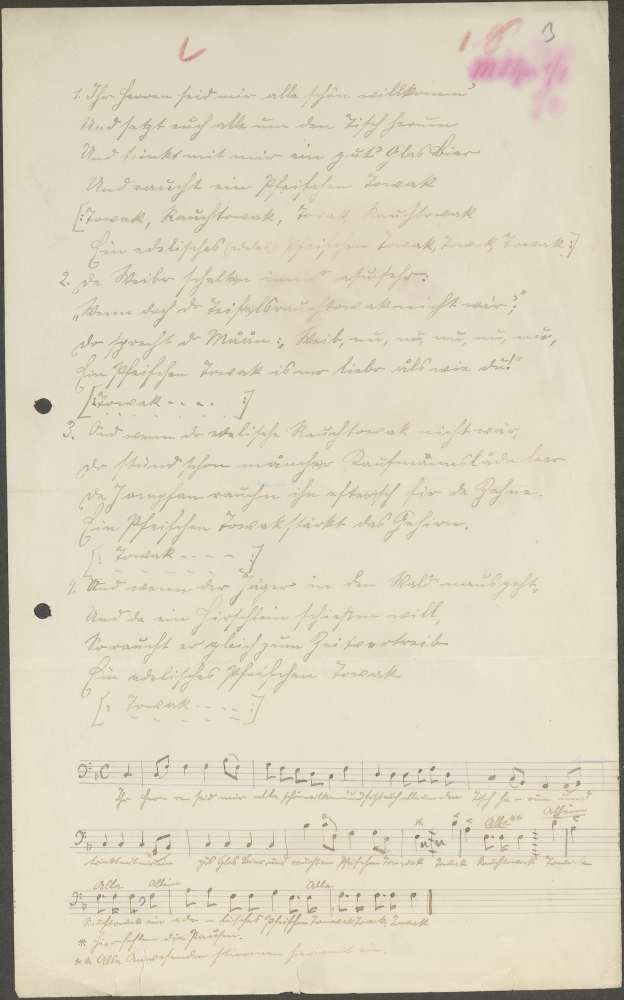 3
1. Ihr Herren seid mir alle schön willkomm'
Und setzt euch alle um den Tisch herum
Und trinkt mit mir ein gut's Glas Bier
Und raucht ein Pfeifchen Towak
[: Towak, Rauchtowak, Towak, Rauchtowak
Ein edelisches Pfeifchen Towak, Towak, Towak :]
2. De Weiber schelten
„Wenn doch dr Teifelsrauchtowak nicht wär?"
Do sprecht dr Männ: „Weib, nu, nu, nu, nu, nu,
Ein Pfeifchen Towak is mr lieber als wie du!"
[: Towak - - - :]
3. Und wenn dr edelische Rauchtowak nicht wär,
Do ständ schon mancher Kaufmannsladn leer
De Jompfan rauchn ihn für de Zähne.
Ein Pfeifchen Towak stärkt das Gehirn.
[: Towak - - - - :]
4. Und wenn der Jäger in den Wald nausgeht,
Und da ein Hirschlein schießen will,
So raucht er gleich zum Zeitvertreib
Ein edelisches Pfeifchen Towak
[: Towak - - - - :]
Ihr Her-ren seid mir alle schön willkomm und setzt euch alle um den Tisch he-rum und
Alle**
Allein
trinkt mit mir ein gut's Glas Bier und raucht ein Pfeifchen Towak Towak Rauchtowak Towak
Alle Allein Alle
Rauchtowak ein ede-lisches Pfeifchen Towak Towak, Towak
* Hier fehlen die Pausen.
** Alle Anwesenden stimmen hiermit ein.